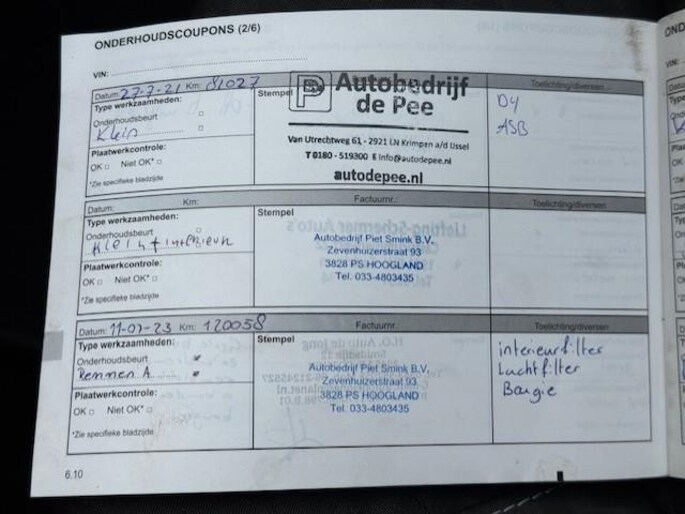 ONDERHOUDSCOUPONS (2/6)
VIN:
Datum: 27-7-21 Km: 81027
Type werkzaamheden:
Onderhoudsbeurt
Klein
Plaatwerkcontrole:
OK Niet OK*
*Zie specifieke bladzijde
Stempel
P Autobedrijf
de Pee
Van Utrechtweg 61 - 2921 LN Krimpen a/d IJssel
T 0180 - 519300 E info@autodepee.nl
autodepee.nl
Toelichting/diversen
D4
ASB
Datum: Km: Factuurnr.
Type werkzaamheden:
Onderhoudsbeurt
Klein + interieur
Plaatwerkcontrole:
OK Niet OK*
*Zie specifieke bladzijde
Stempel
Autobedrijf Piet Smink B.V.
Zevenhuizerstraat 93
3828 PS HOOGLAND
Tel. 033-4803435
Toelichting/diversen
Datum: 11-07-23 Km: 120058 Factuurnr.
Type werkzaamheden:
Onderhoudsbeurt
Remmen A
Plaatwerkcontrole:
OK Niet OK*
*Zie specifieke bladzijde
Stempel
Autobedrijf Piet Smink B.V.
Zevenhuizerstraat 93
3828 PS HOOGLAND
Tel. 033-4803435
Toelichting/diversen
interieurfilter
Luchtfilter
Bougie
6.10